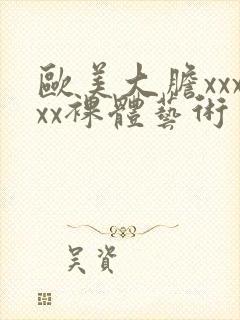 歐美大膽xxx
xx裸體藝術
吴資